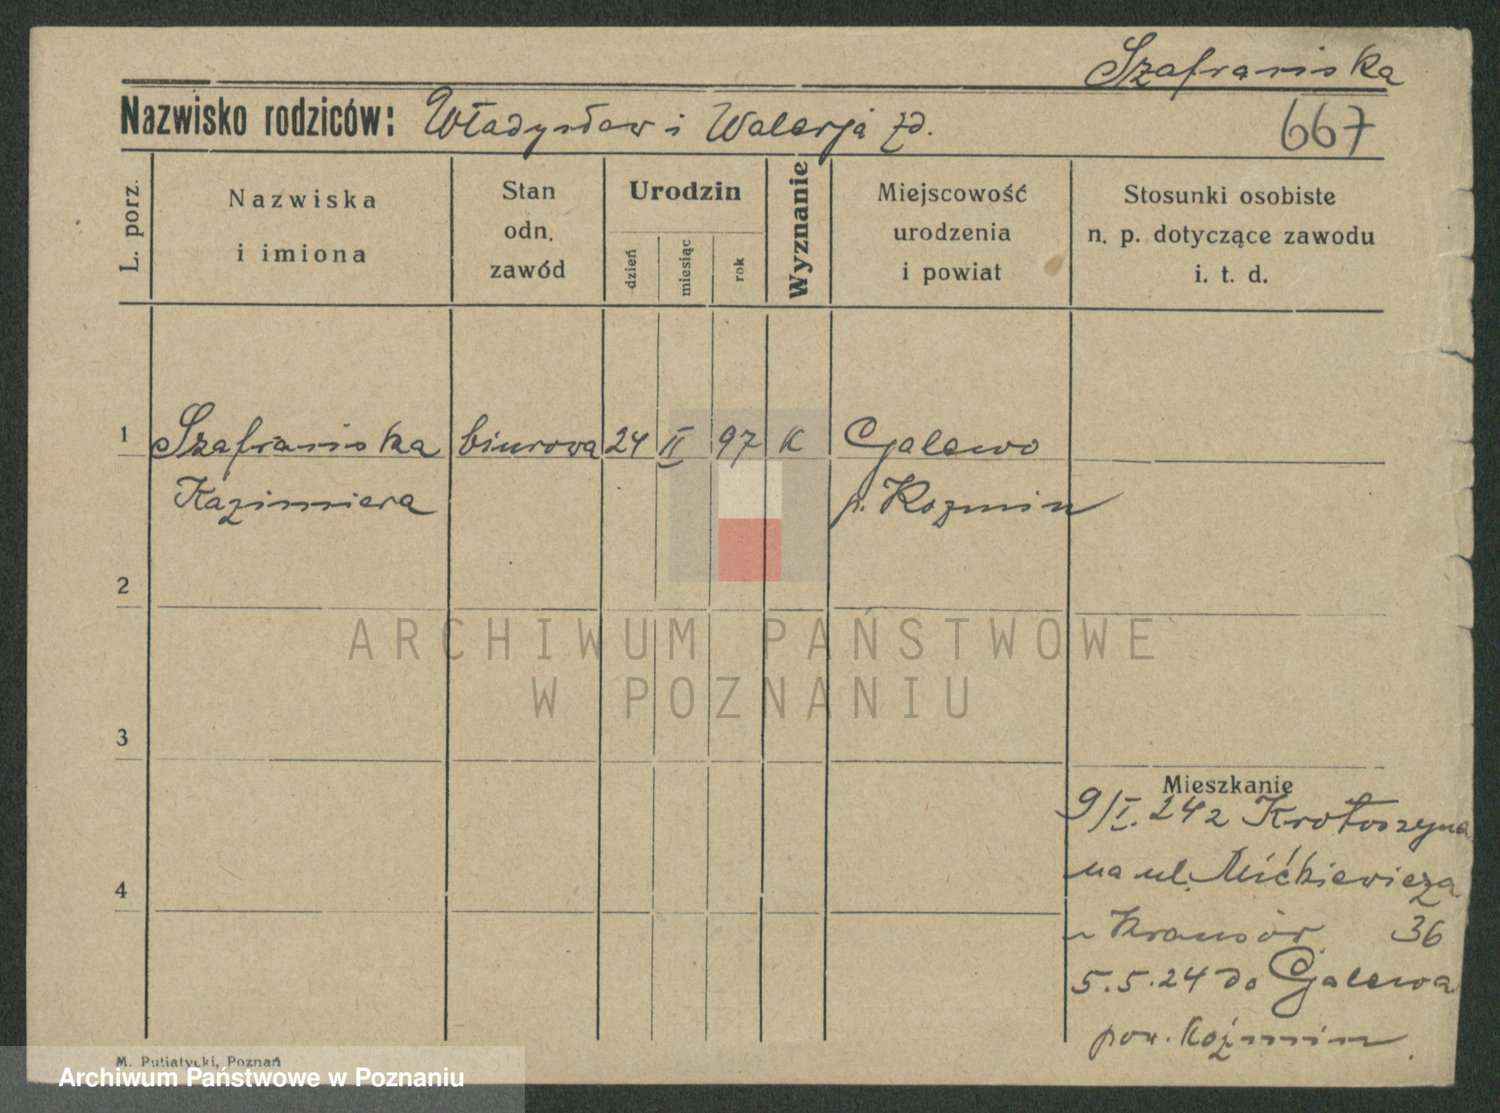 Szafrańska
Nazwisko rodziców: Władysław i Walerja zd.
667
L. porz.
Nazwiska
i imiona
Stan
odn.
zawód
Urodzin
dzień
miesiąc
rok
Wyznanie
Miejscowość
urodzenia
i powiat
Stosunki osobiste
n. p. dotyczące zawodu
i. t. d.
1 Szafrańska biurowa 24 II 97 K Galewo
Kazimiera p. Kozmin
2
ARCHIWUM PAŃSTWOWE
W POZNANIU
3
Mieszkanie
9/I. 24 z Krotoszyna
na ul. Mickiewicza
36
4
5.5.24 do Galewa
pow. Koźmin.
M. Putiatycki, Poznań
Archiwum Państwowe w Poznaniu